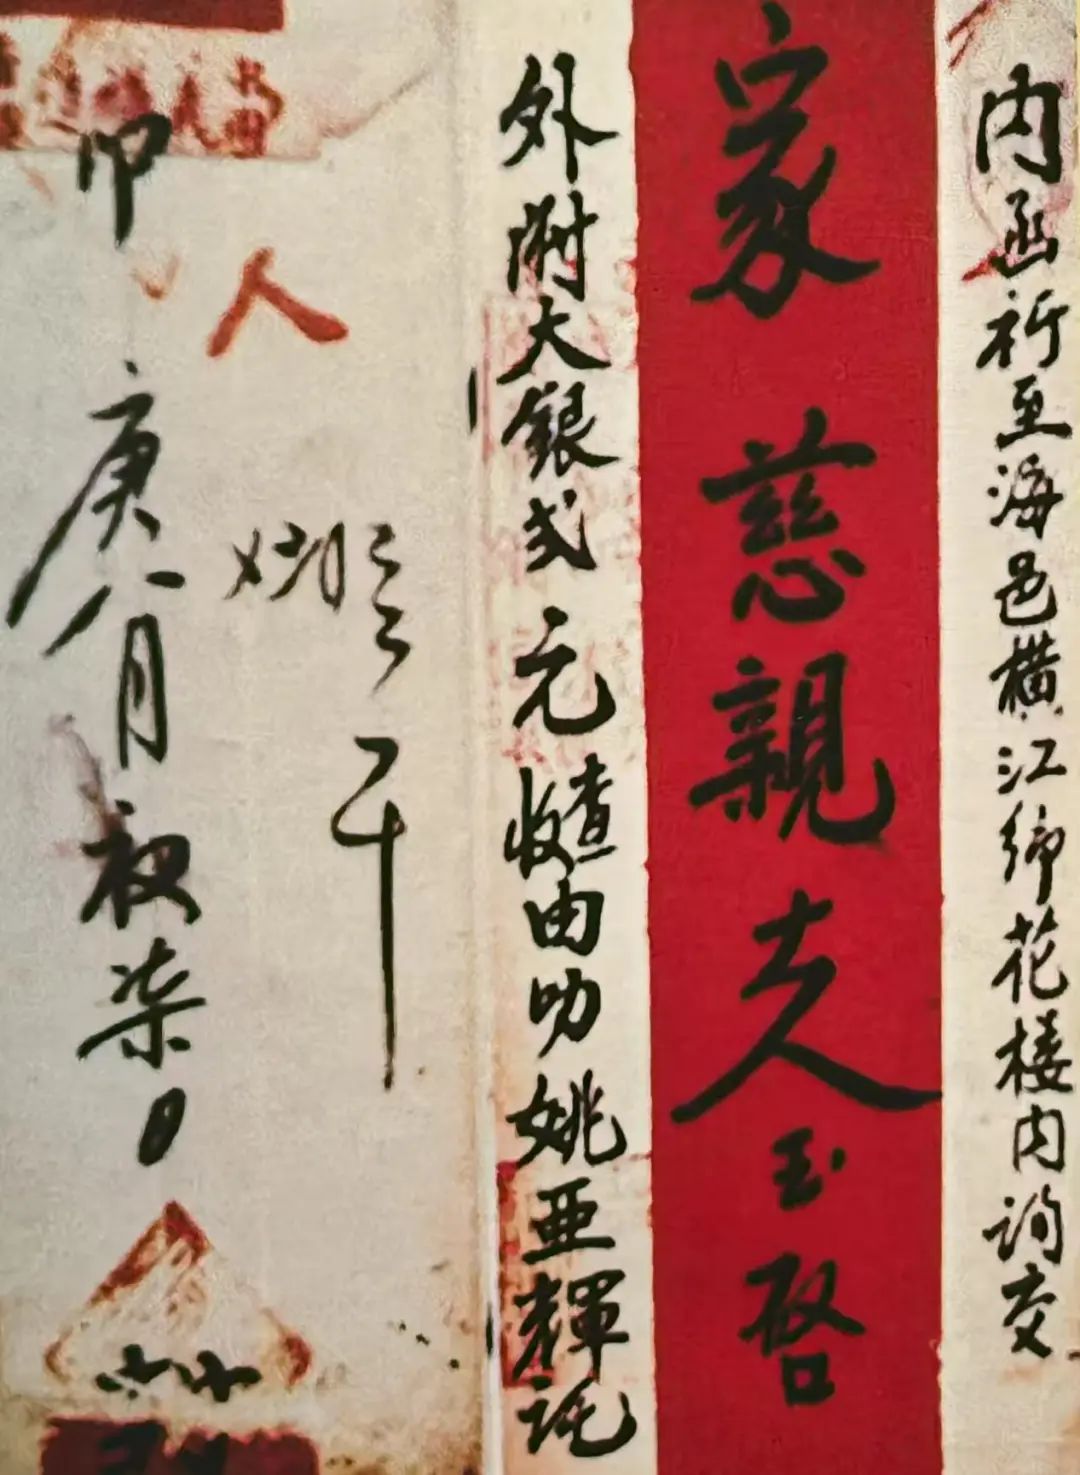 内函祈至海邑橫江鄉花楼内詢交
家慈親大人玉啓
外附大銀弍元
查收
由叻姚亞輝託
人
甲
庚八月初柒日